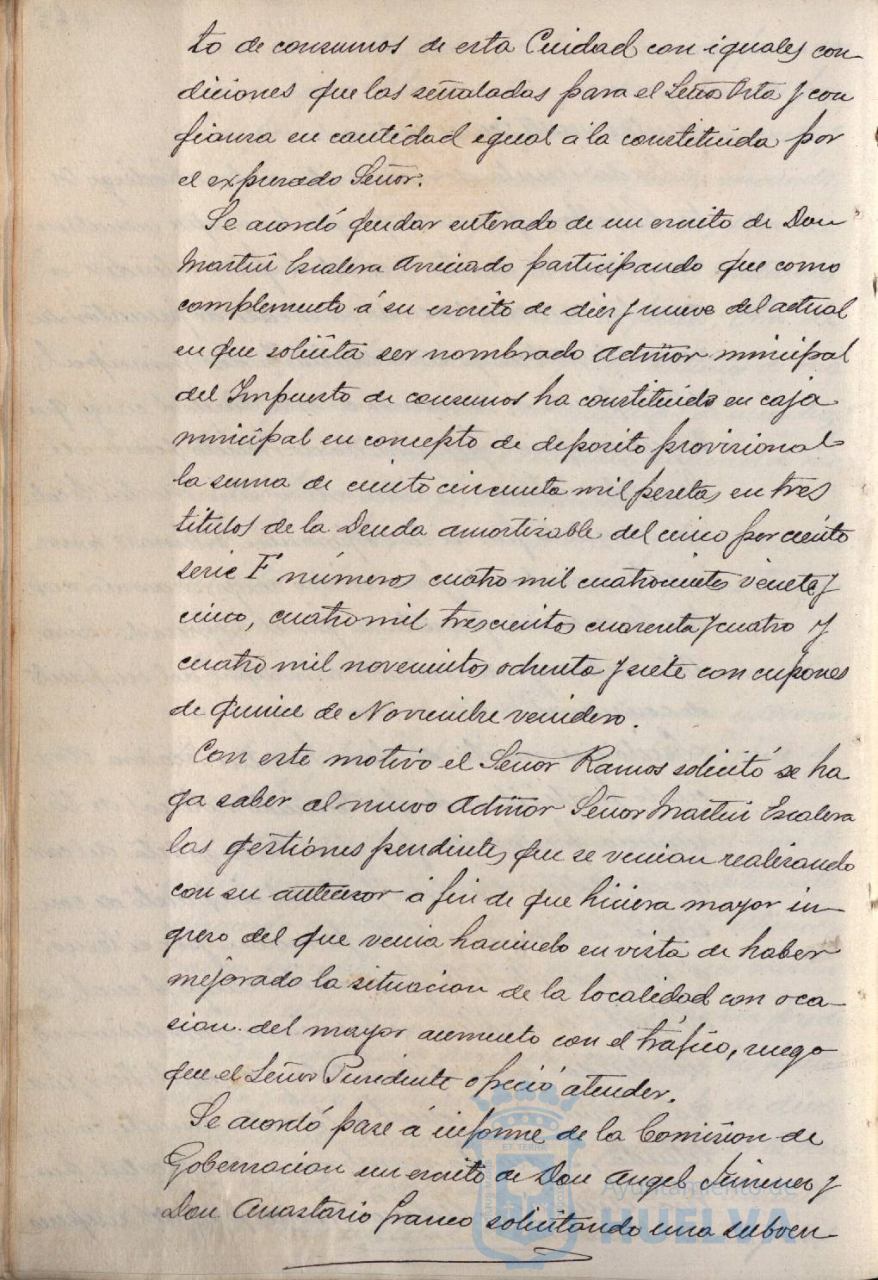 to de consumos de esta Cuidad con iguales con-
diciones que las señaladas para el Señor Orta y con
fianza en cantidad igual á la constituida por
el expresado Señor.
Se acordó quedar enterado de un escrito de Don
Martin Escalera Aniciado participando que como
complemento á su escrito de diez y nueve del actual
en que solicita ser nombrado Admñor municipal
del Impuesto de consumos ha constituido en caja
municipal en concepto de deposito provisional
la suma de ciento cincuenta mil pesetas en tres
titulos de la Deuda amortizable del cinco por ciento
serie F números cuatro mil cuatrocientos veinte y
cinco, cuatro mil trescientos cuarenta y cuatro y
cuatro mil novecientos ochenta y siete con cupones
de quince de Noviembre venidero.
Con este motivo el Señor Ramos solicitó se ha
ga saber al nuevo Admñor Señor Martin Escalera
las gestiones pendientes que se venian realizando
con su antecesor á fin de que hiciera mayor in-
greso del que venia haciendo en vista de haber
mejorado la situacion de la localidad con oca-
sion del mayor aumento con el tráfico, ruego
que el Señor Presidente ofreció atender.
Se acordó pase á informe de la Comision de
Gobernacion un escrito de Don Angel Jimenez y
Don Anastasio Franco solicitando una subven-
Ayuntamiento de
HUELVA